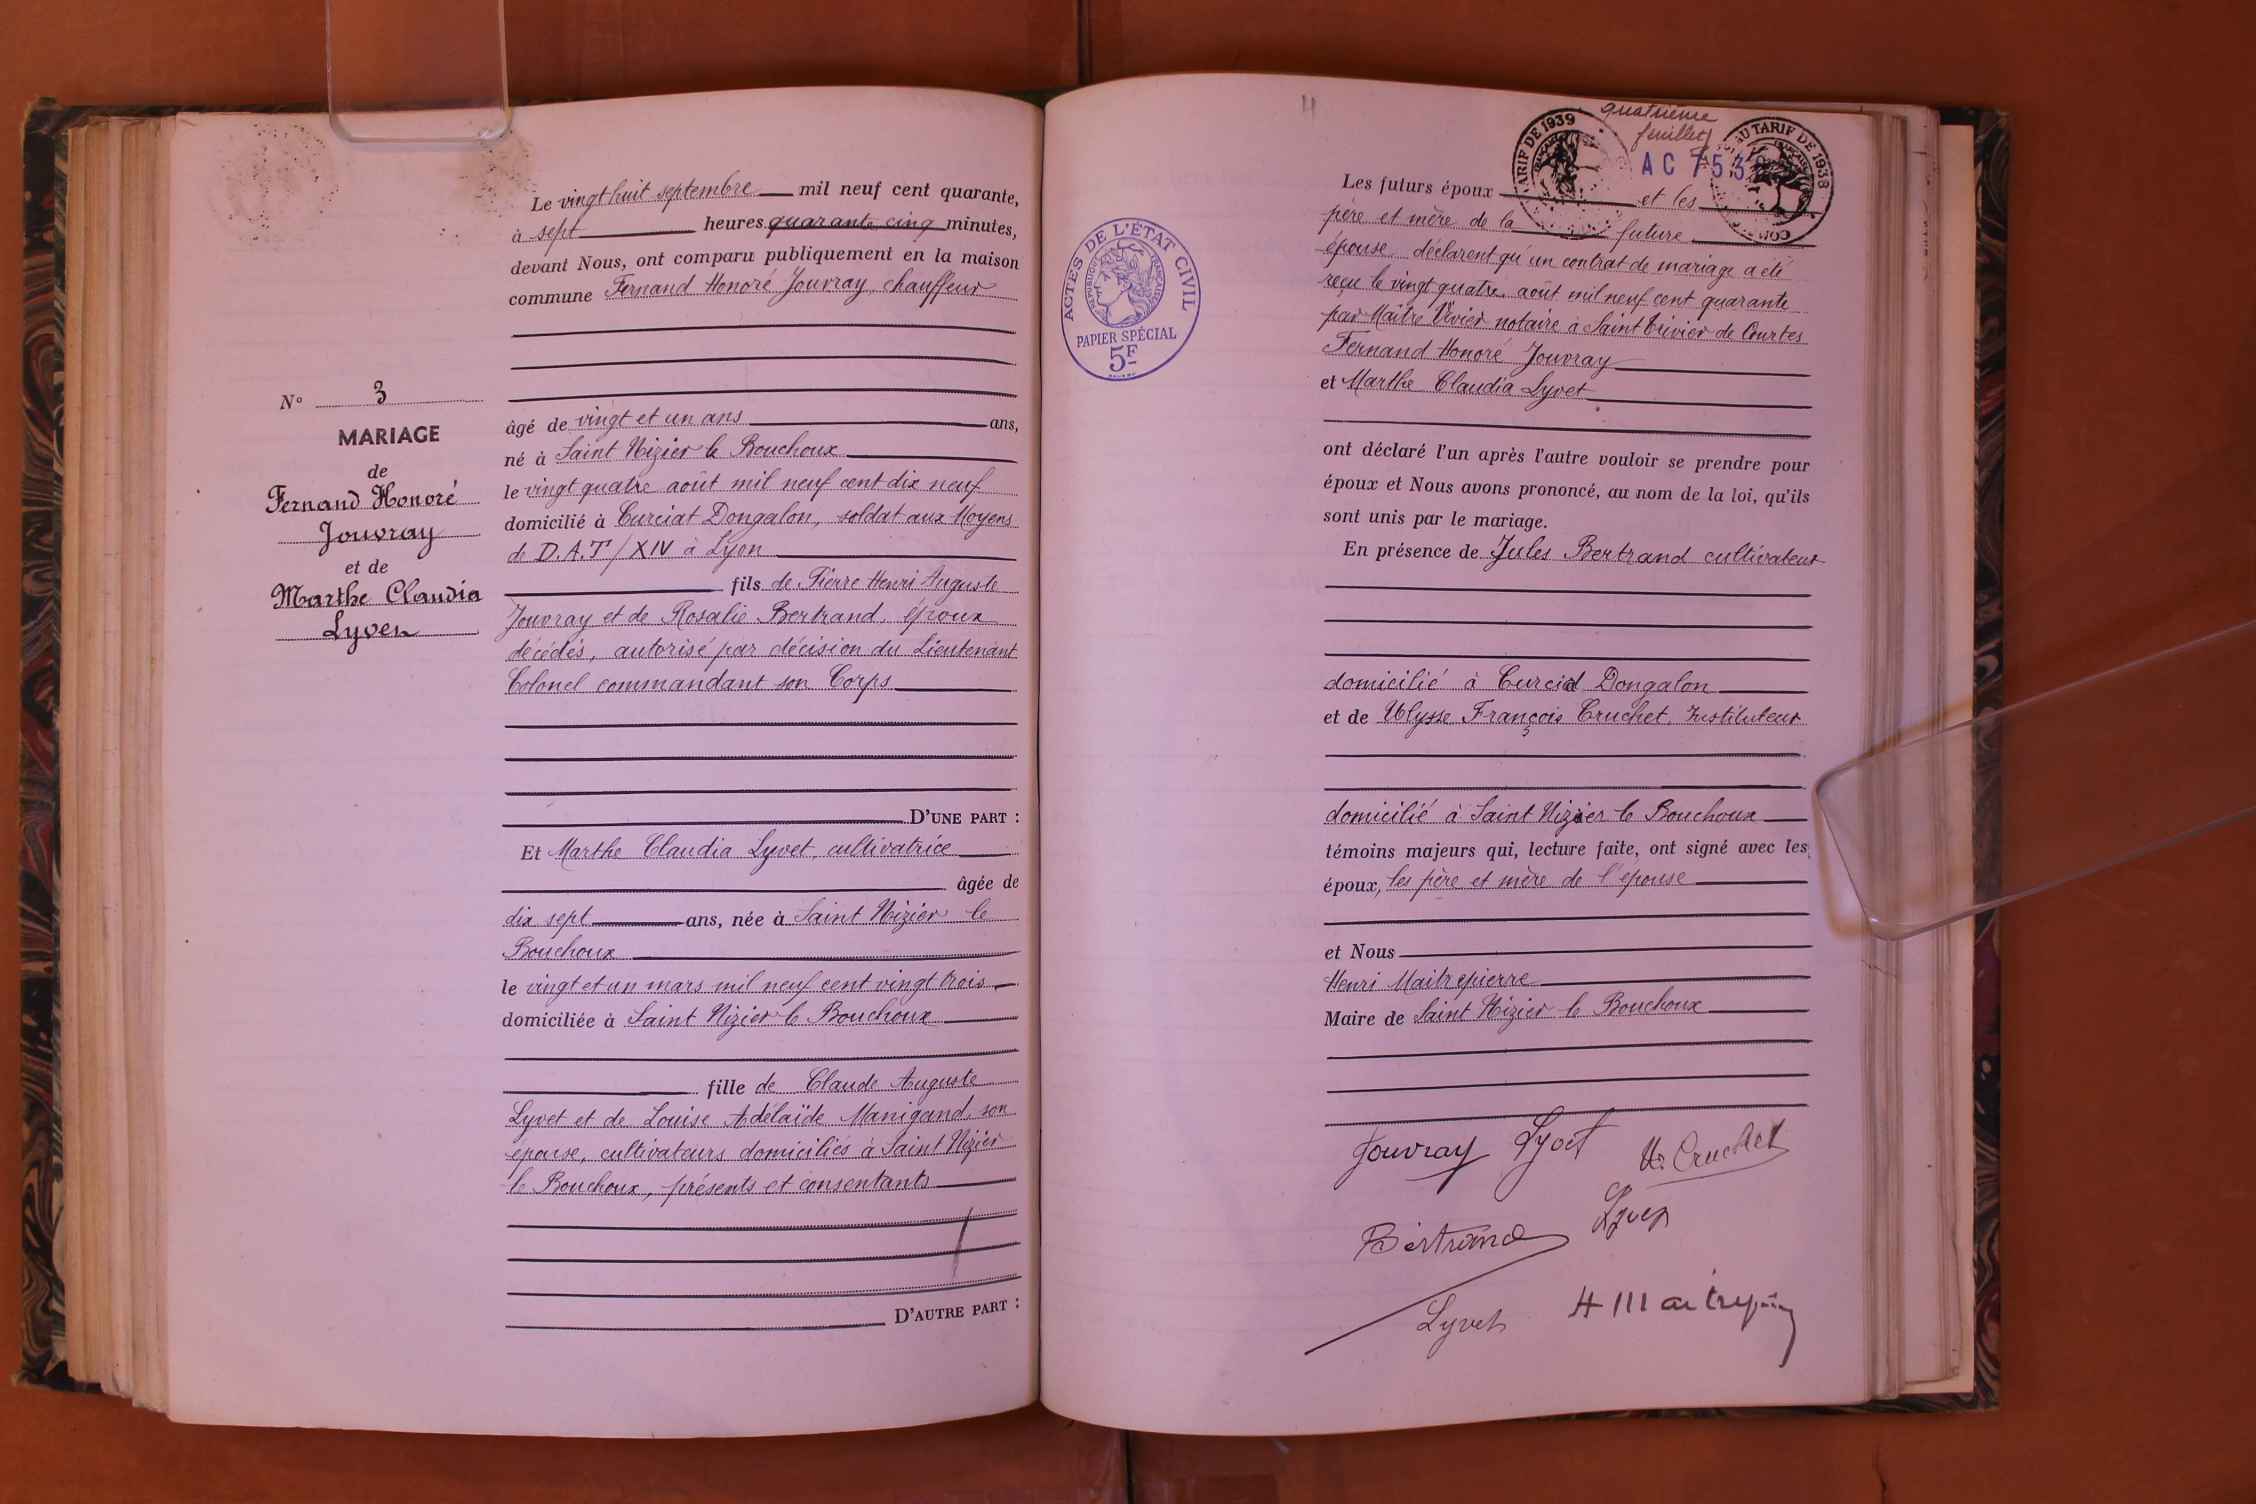 N° 3
MARIAGE
de
Fernand Honoré
Jouvray
et de
Marthe Claudia
Lyvet
Le vingt huit septembre mil neuf cent quarante,
à sept heures quarante cinq minutes,
devant Nous, ont comparu publiquement en la maison
commune Fernand Honoré Jouvray, chauffeur
âgé de vingt et un ans ans,
né à Saint Nizier le Bouchoux
le vingt quatre août mil neuf cent dix neuf
domicilié à Curciat Dongalon, soldat aux Moyens
de D.A.T/XIV à Lyon
fils de Pierre Henri Auguste
Jouvray et de Rosalie Bertrand époux
décédés, autorisé par décision du Lieutenant
Colonel commandant son Corps
D'UNE PART :
Et Marthe Claudia Lyvet, cultivatrice
âgée de
dix sept ans, née à Saint Nizier le
Bouchoux
le vingt et un mars mil neuf cent vingt trois
domiciliée à Saint Nizier le Bouchoux
fille de Claude Auguste
Lyvet et de Louise Adélaïde Manigand, son
épouse, cultivateurs domiciliés à Saint Nizier
le Bouchoux, présents et consentants
D'AUTRE PART :
4
quatrième
feuillet
TARIF DE 1939
AC 753
AU TARIF DE 1938
ACTES DE L'ÉTAT CIVIL
RÉPUBLIQUE FRANÇAISE
PAPIER SPÉCIAL
5F
Les futurs époux et les
père et mère de la future
épouse déclarent qu'un contrat de mariage a été
reçu le vingt quatre août mil neuf cent quarante
par Maître Vivier notaire à Saint Trivier de Courtes
Fernand Honoré Jouvray
et Marthe Claudia Lyvet
ont déclaré l'un après l'autre vouloir se prendre pour
époux et Nous avons prononcé, au nom de la loi, qu'ils
sont unis par le mariage.
En présence de Jules Bertrand cultivateur
domicilié à Curciat Dongalon
et de Ulysse François Cruchet, Instituteur
domicilié à Saint Nizier le Bouchoux
témoins majeurs qui, lecture faite, ont signé avec les
époux, les père et mère de l'épouse
et Nous
Henri Maitrepierre
Maire de Saint Nizier le Bouchoux
Jouvray Lyvet U. Cruchet
Bertrand Lyvet
Lyvet H Maitrepierre